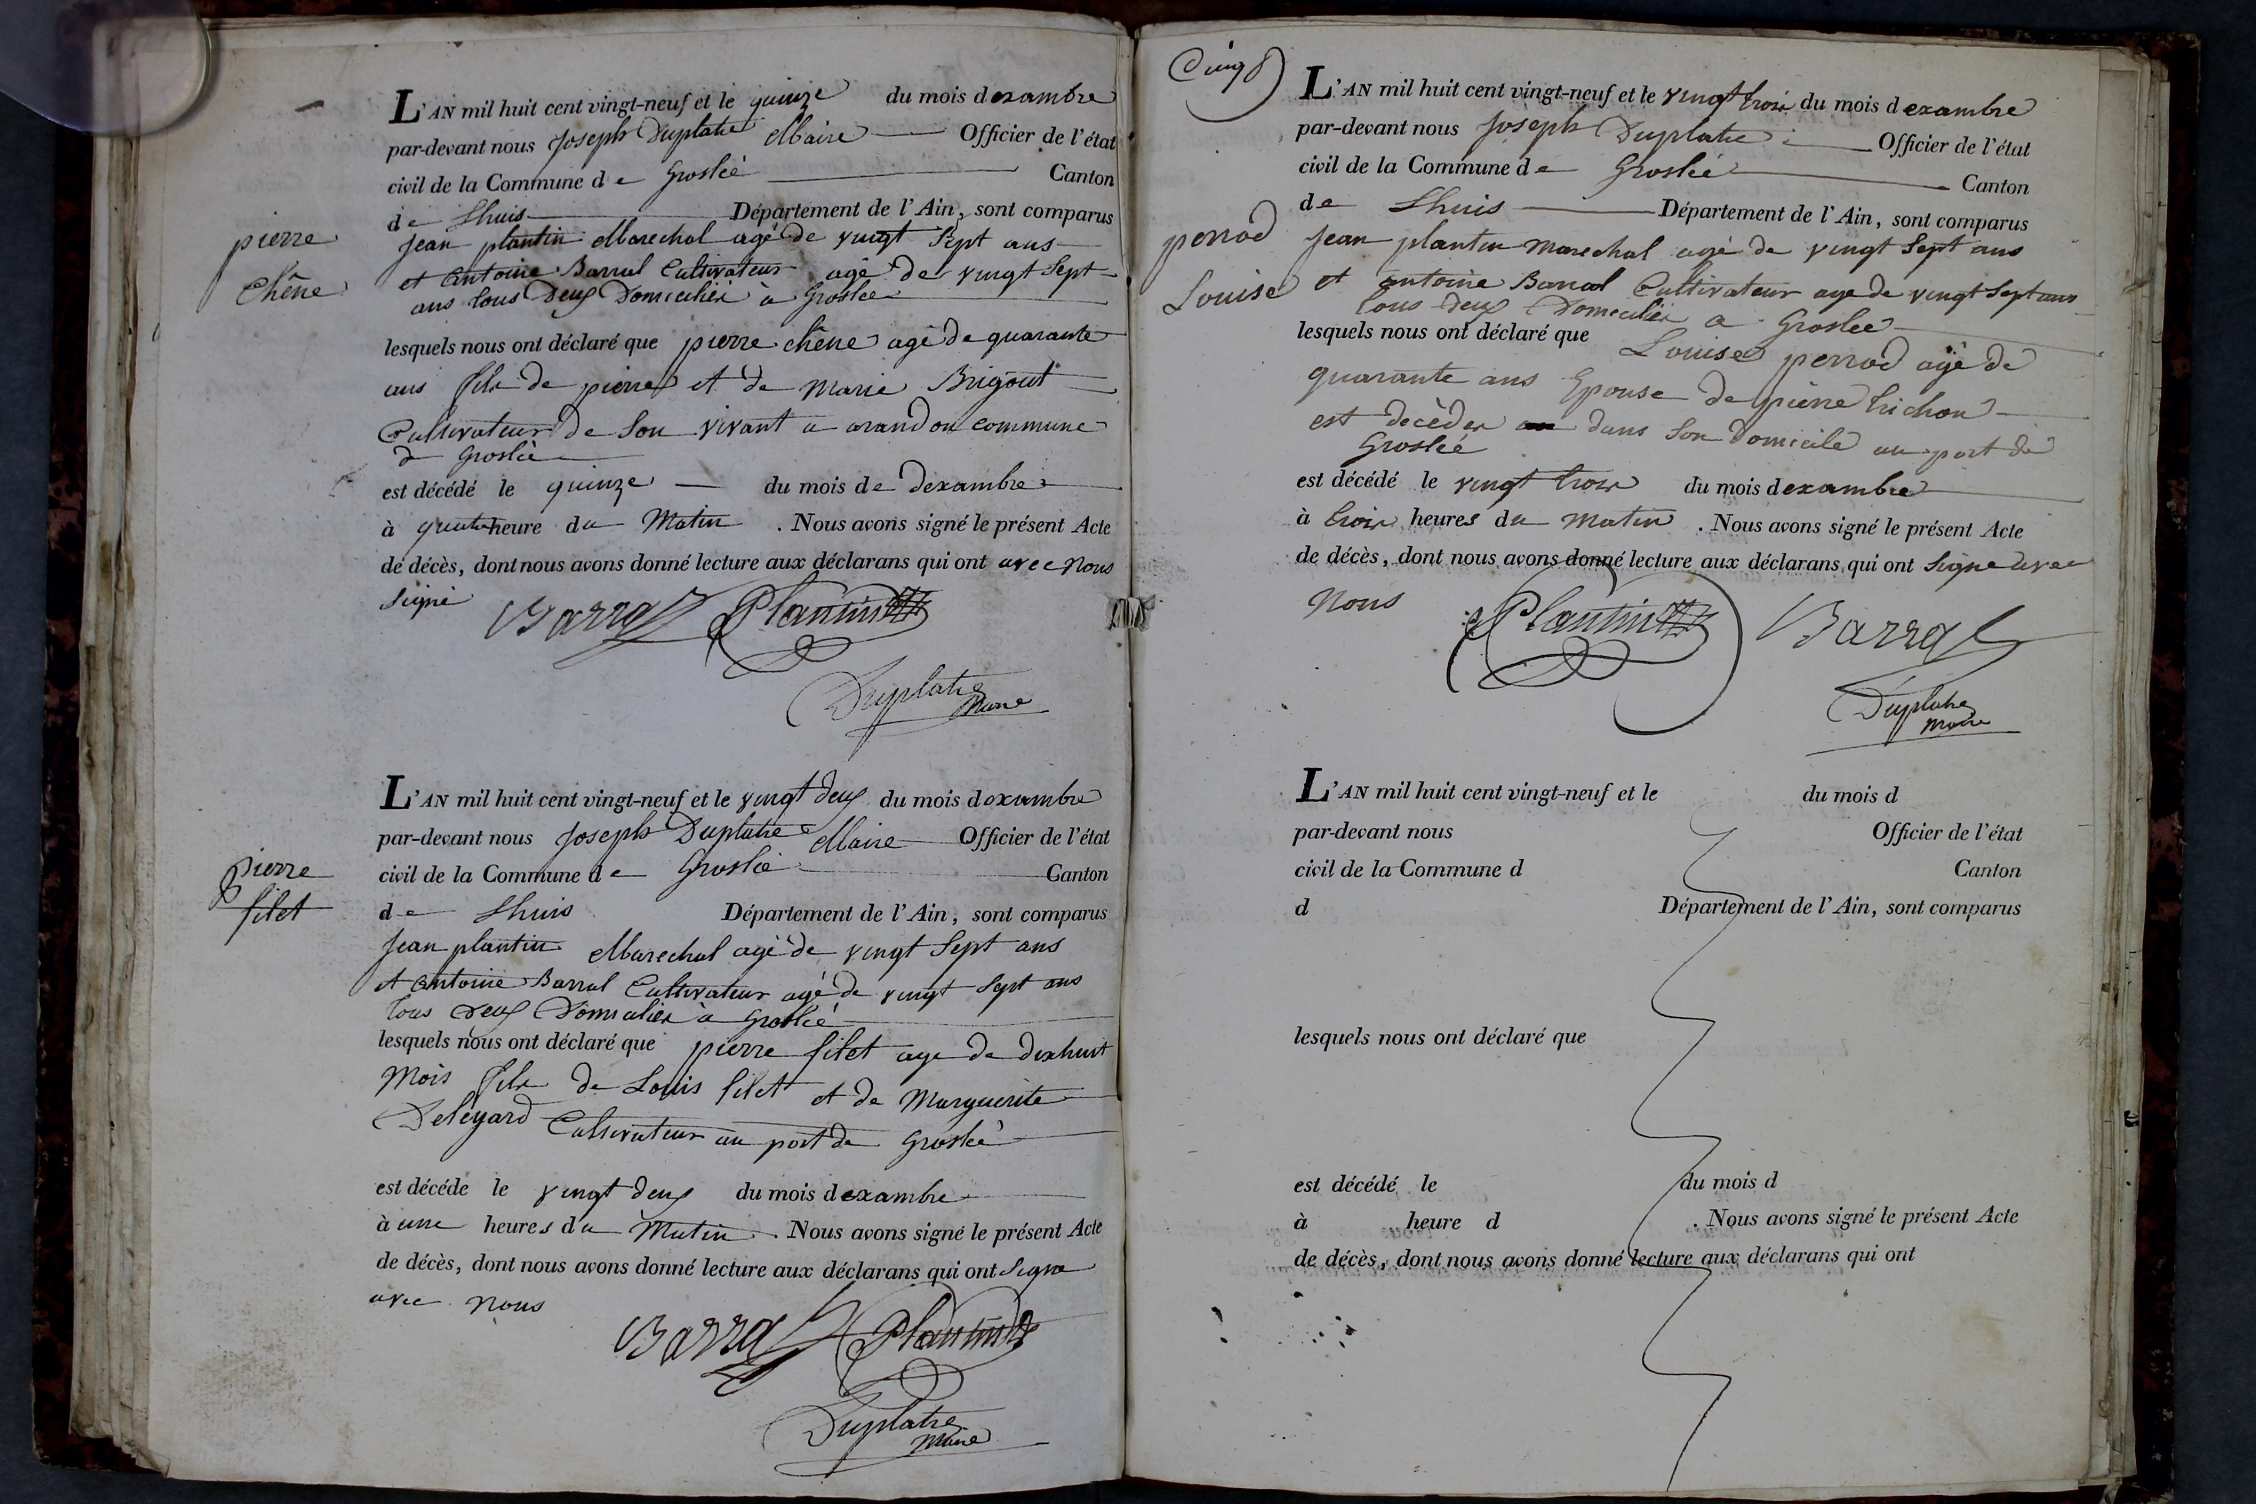 pierre
chêne
L'AN mil huit cent vingt-neuf et le quinze du mois dexambre
par-devant nous Joseph Duplatre Maire Officier de l'état
civil de la Commune de Groslée Canton
de Lhuis Département de l'Ain, sont comparus
Jean plantin Marechal agé de vingt Sept ans
et Antoine Barral Cultivateur agé de vingt Sept
ans tous Deux Domiciliés à Groslée
lesquels nous ont déclaré que pierre chêne agé de quarante
ans fils de pierre et de Marie Brigout
Cultivateur de Son vivant a arandon commune
d Groslée
est décédé le quinze du mois de dexambre
à quatre heure du Matin . Nous avons signé le présent Acte
de décès, dont nous avons donné lecture aux déclarans qui ont avec nous
Signé Barral Plantin
Duplatre
Maire
pierre
filet
L'AN mil huit cent vingt-neuf et le vingt deux du mois dexambre
par-devant nous Joseph Duplatre Maire Officier de l'état
civil de la Commune de Groslée Canton
de Lhuis Département de l'Ain, sont comparus
Jean plantin Marechal agé de vingt Sept ans
et Antoine Barral Cultivateur agé de vingt Sept ans
tous Deux Domiciliés à Groslée
lesquels nous ont déclaré que pierre filet age de dixhuit
Mois fils de Louis filet et de Marguerite
Deleyard Cultivateur au port de Groslée
est décéde le vingt deux du mois dexambre
à une heures du Matin . Nous avons signé le présent Acte
de décès, dont nous avons donné lecture aux déclarans qui ont Signe
avec nous
Barral Plantin
Duplatre
Maire
perrod
Louise
L'AN mil huit cent vingt-neuf et le vingt trois du mois dexambre
par-devant nous Joseph Duplatre Officier de l'état
civil de la Commune de Groslée Canton
de Lhuis Département de l'Ain, sont comparus
Jean plantin Marechal agé de vingt Sept ans
et antoine Barral Cultivateur age de vingt Sept ans
tous deux Domiciliés a Groslee
lesquels nous ont déclaré que Louise perrod agé de
quarante ans Epouse de pierre trichon
est décèdés dans Son Domicile au port de
Groslée
est décédé le vingt trois du mois dexambre
à trois heures du Matin . Nous avons signé le présent Acte
de décès, dont nous avons donné lecture aux déclarans qui ont Signe avec
Nous
Plantin Barral
Duplatre
Maire
L'AN mil huit cent vingt-neuf et le du mois d
par-devant nous Officier de l'état
civil de la Commune d Canton
d Département de l'Ain, sont comparus
lesquels nous ont déclaré que
est décédé le du mois d
à heure d . Nous avons signé le présent Acte
de décès, dont nous avons donné lecture aux déclarans qui ont